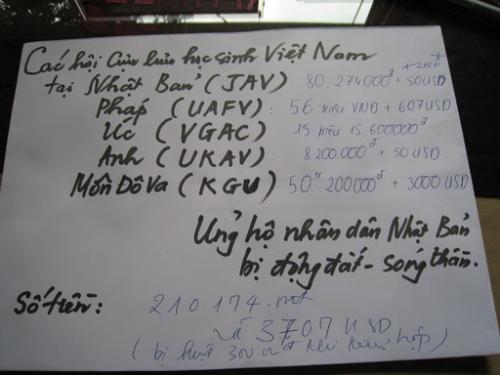 Các hội Cựu lưu học sinh Việt Nam
tại Nhật Bản (JAV) 80.274000đ + 50USD
Pháp (UAFV): 56 triệu VNĐ + 607USD
Úc (VGAC) 15 triệu 15.600000đ
Anh (UKAV) 8200.000đ + 50 USD
Môn Đô Va (KGU) 50tr 200000đ + 3000 USD
Ủng hộ nhân dân Nhật Bản
bị động đất - sóng thần.
Số tiền: 210.174.
và 3707 USD
(bị